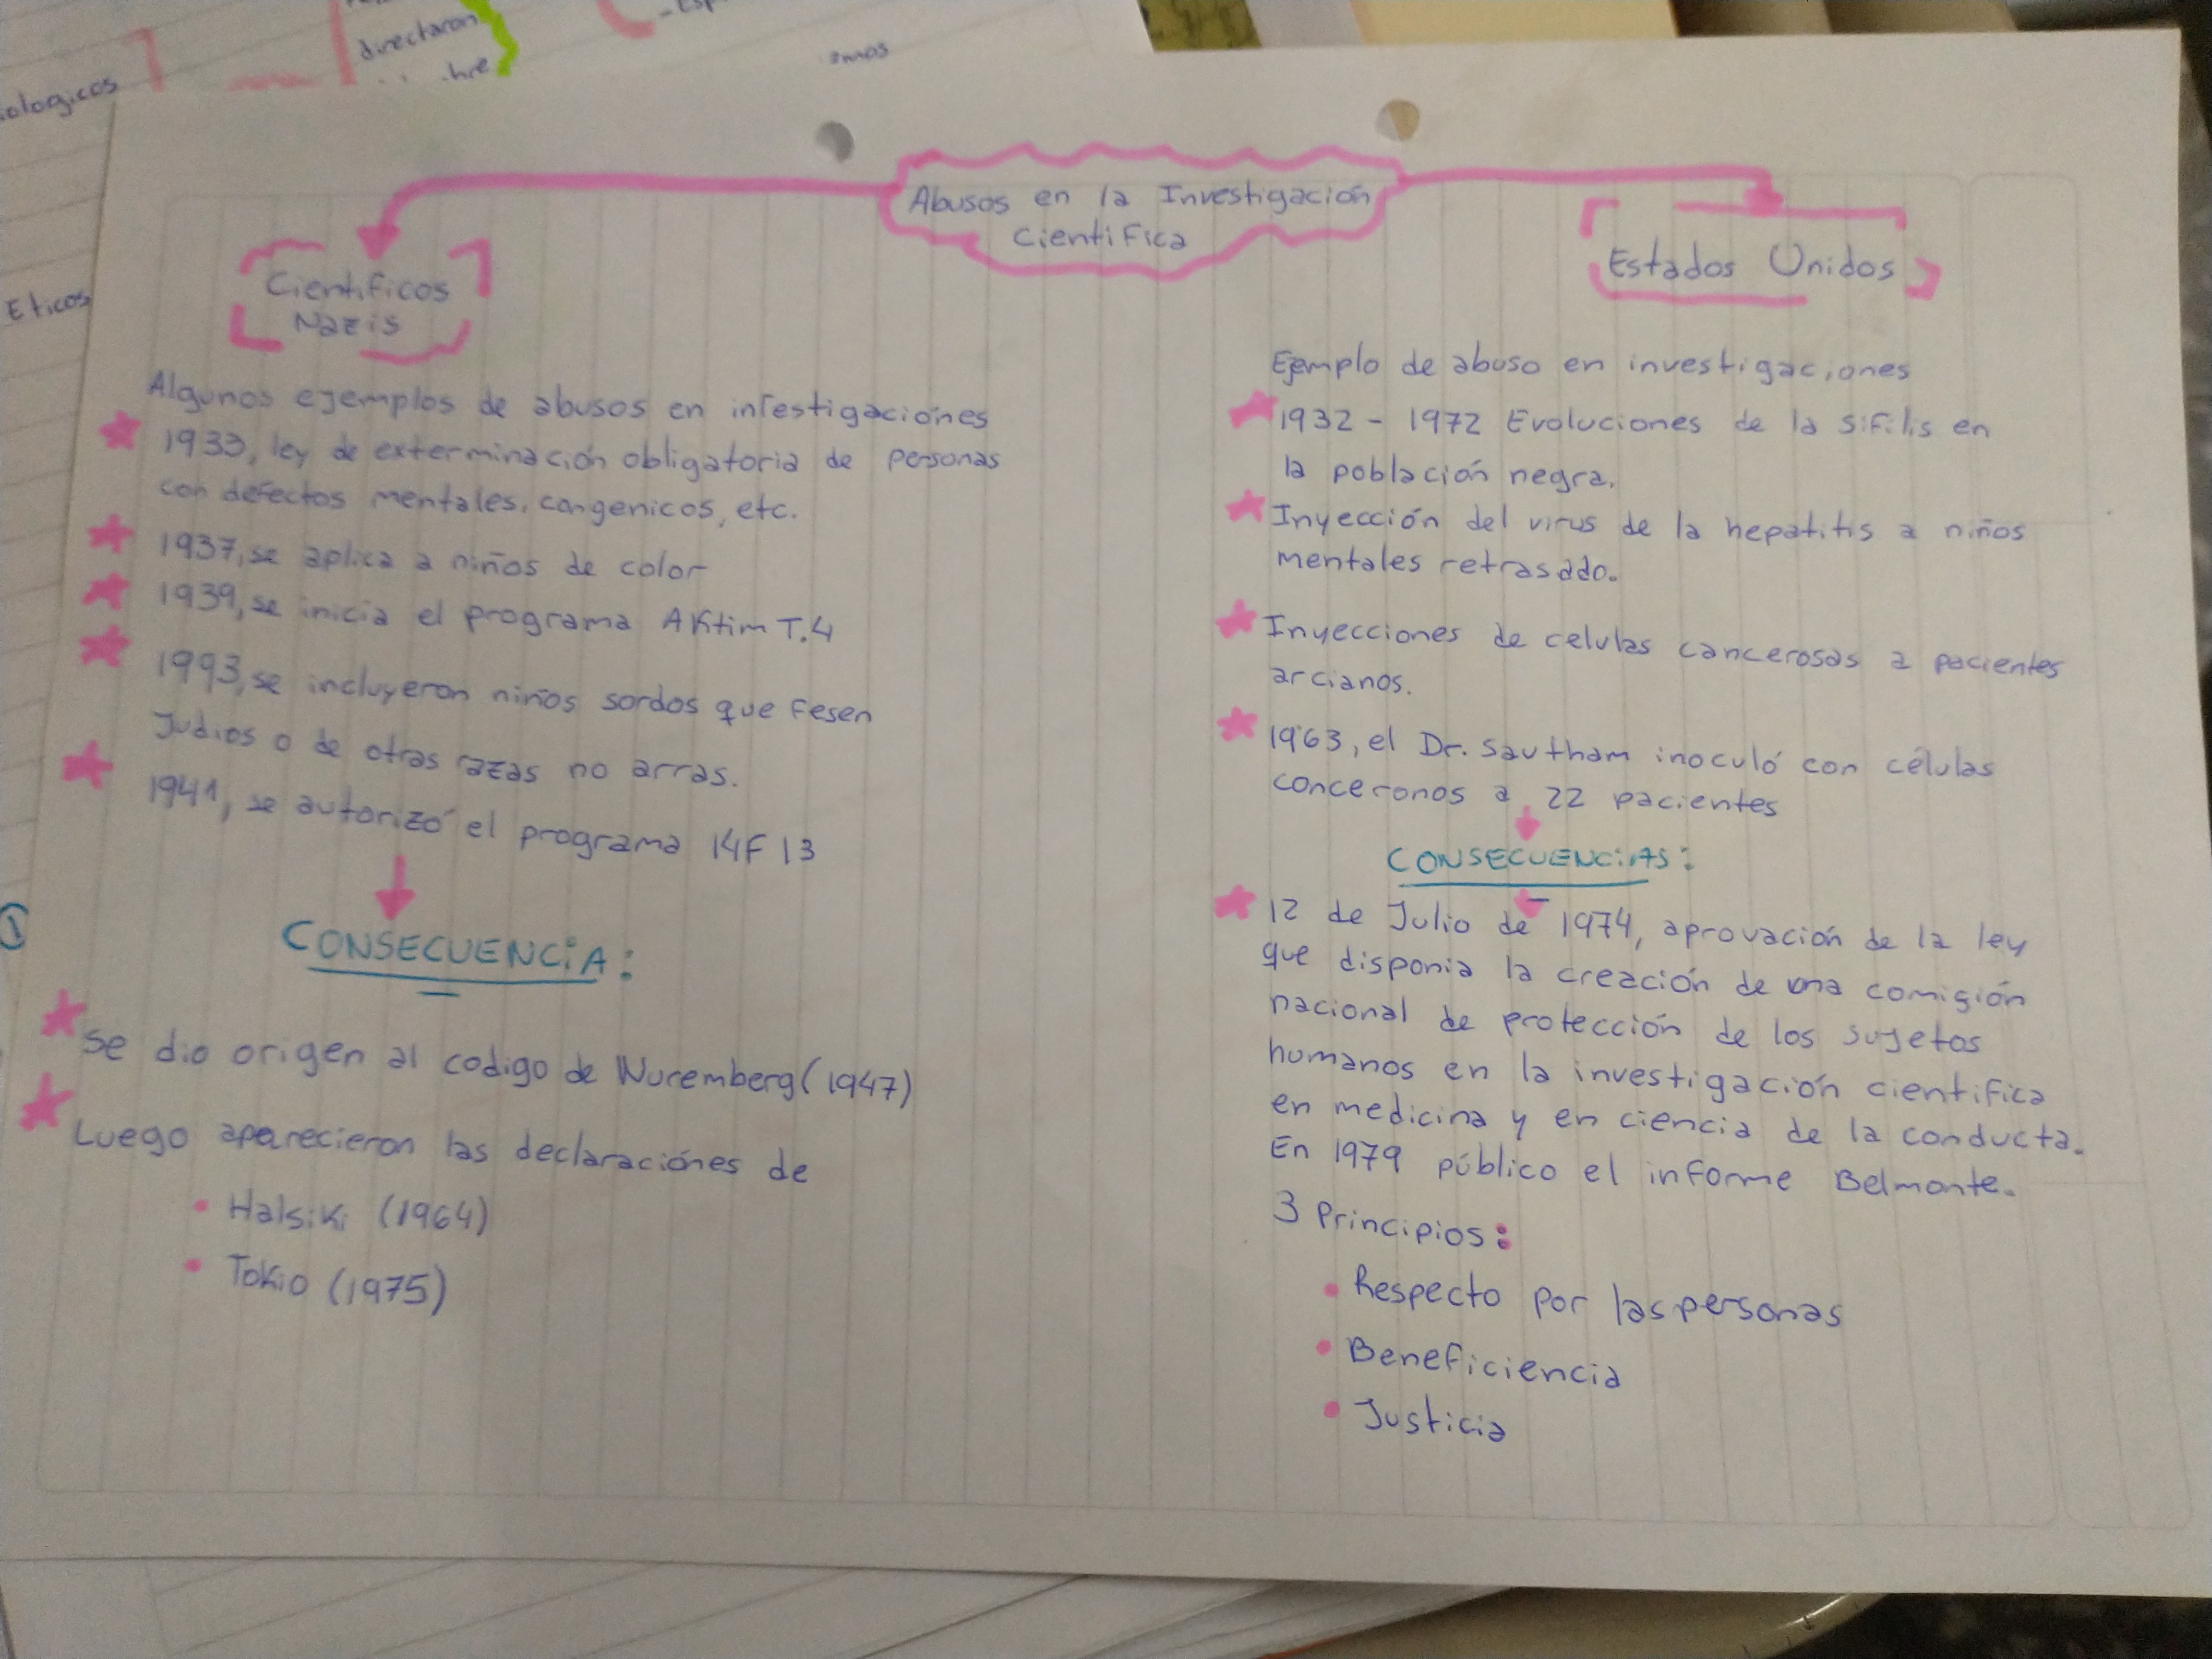 directaron
ologicos
Eticos
Abusos en la Investigación
Cientifica
Cientificos
Nazis
Algunos ejemplos de abusos en infestigaciónes
1933, ley de exterminación obligatoria de personas
con defectos mentales, congenicos, etc.
1937, se aplica a niños de color
1939, se inicia el programa Aktim T.4
1993, se incluyeron niños sordos que fesen
Judios o de otras razas no arras.
1941, se autorizó el programa 14F 13
CONSECUENCiA:
Se dio origen al codigo de Nuremberg (1947)
Luego aparecieron las declaraciónes de
• Halsiki (1964)
• Tokio (1975)
Estados Unidos
Ejemplo de abuso en investigaciones
1932 - 1972 Evoluciones de la Sifilis en
la población negra.
Inyección del virus de la hepatitis a niños
mentales retrasado.
Inyecciones de celulas cancerosas a pacientes
arcianos.
1963, el Dr. Sautham inoculó con células
conceronos a 22 pacientes
CONSECUENCiAS:
12 de Julio de 1974, aprovación de la ley
que disponia la creación de una comigión
nacional de protección de los sujetos
humanos en la investigación cientifica
en medicina y en ciencia de la conducta.
En 1979 público el informe Belmonte.
3 Principios:
• Respecto por las personas
• Beneficiencia
• Justicia